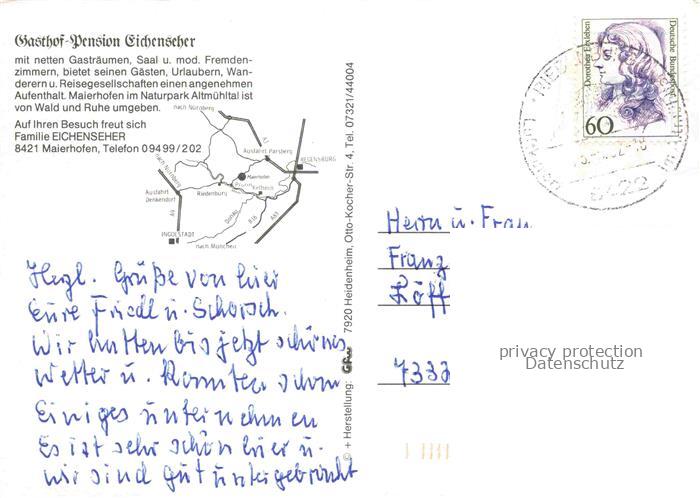 Gasthof-Pension Eichenseher
mit netten Gasträumen, Saal u. mod. Fremden-
zimmern, bietet seinen Gästen, Urlaubern, Wan-
derern u. Reisegesellschaften einen angenehmen
Aufenthalt. Maierhofen im Naturpark Altmühltal ist
von Wald und Ruhe umgeben.
Auf Ihren Besuch freut sich
Familie EICHENSEHER
8421 Maierhofen, Telefon 09499/202
nach Nürnberg
A3
Ausfahrt Parsberg
REGENSBURG
nach Nürnberg
Maierhofen
Prunn
Kelheim
Riedenburg
Ausfahrt
Denkendorf
A9
Donau
B16
A93
INGOLSTADT
nach München
Herzl. Grüße von hier
Eure Friedl u. Schorsch.
Wir hatten bis jetzt schönes
Wetter u. konnten schon
Einiges unternehmen
Es ist sehr schön hier u.
wir sind gut untergebracht
© + Herstellung: 7920 Heidenheim, Otto-Kocher-Str. 4, Tel. 07321/44004
Dorothea Erxleben
Deutsche Bundespost
60
8422
Herrn u. Frau
Franz
Löff
7332
privacy protection
Datenschutz